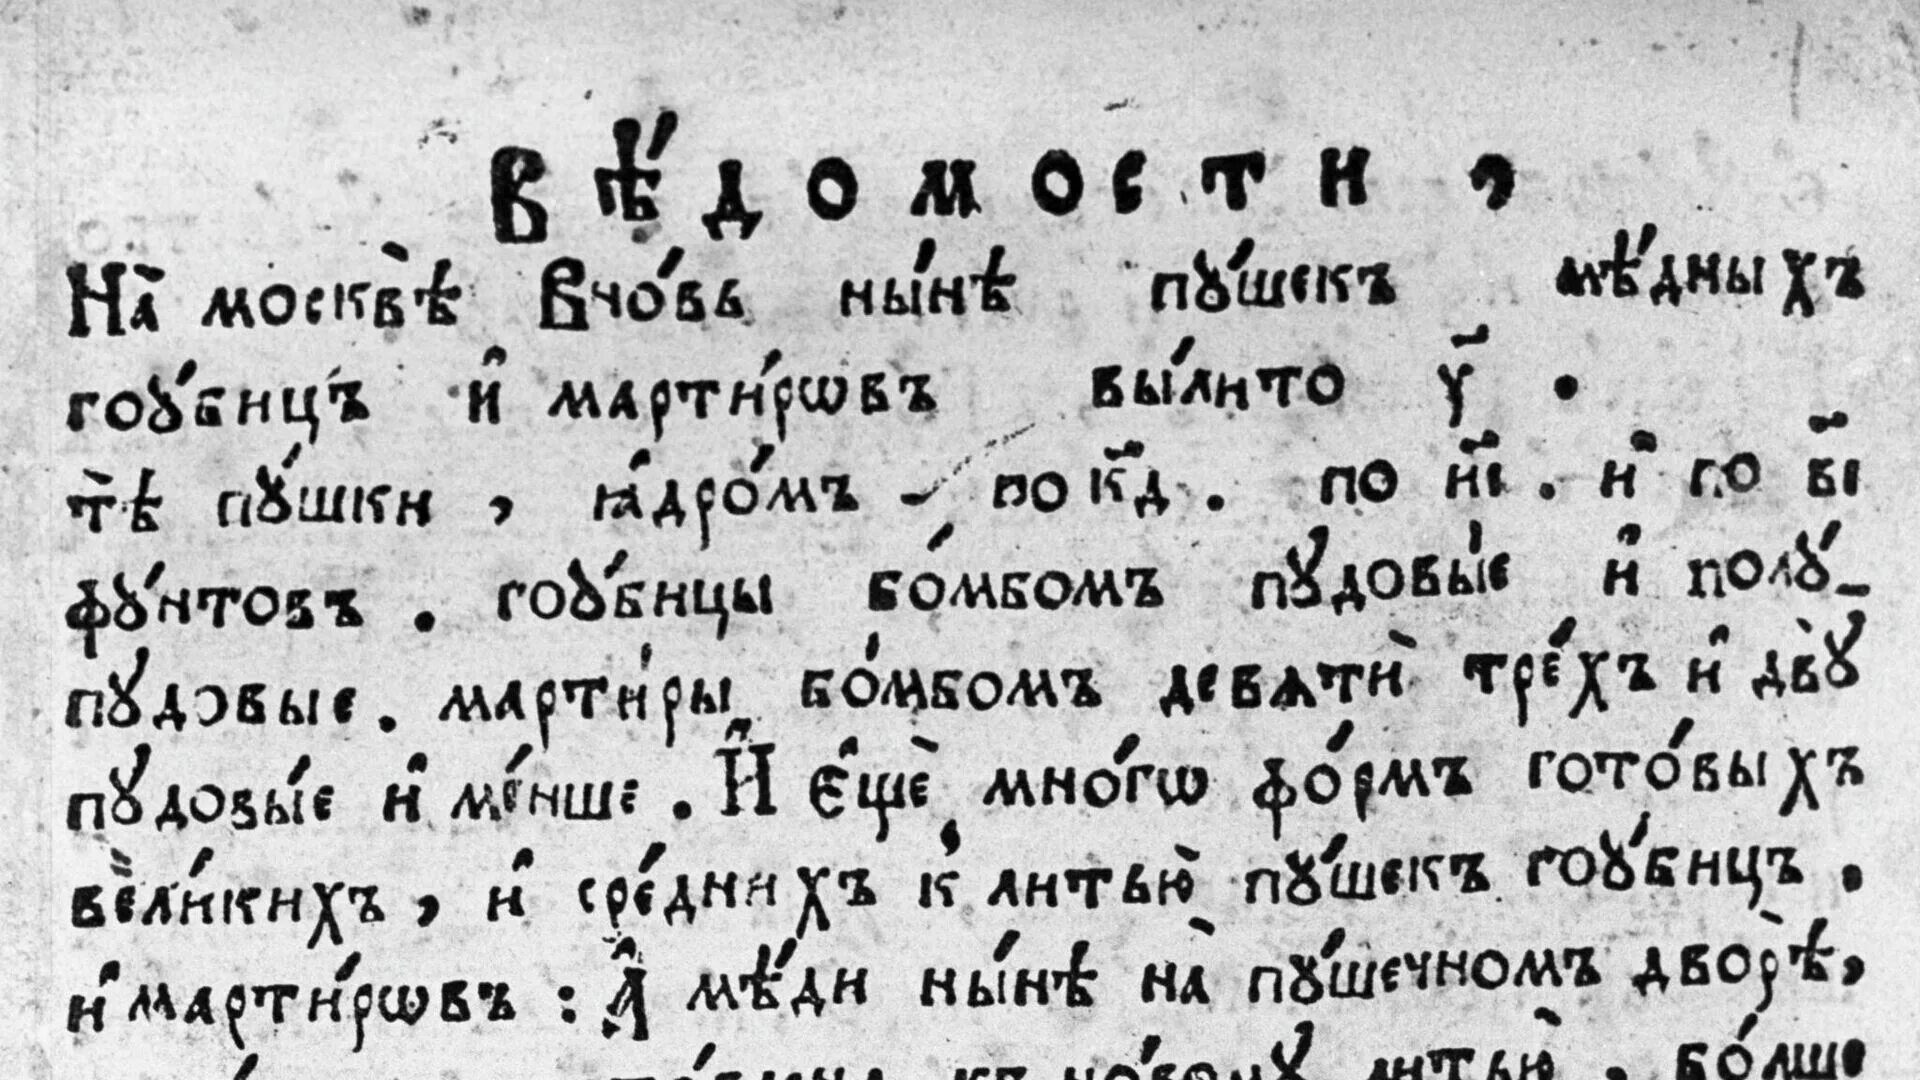 Вѣ́домости,
На̀ москвѣ̀ Вно́вь ны́нѣ пꙋ́шекъ мѣ́дныхъ
гоꙋ́бицъ и҆ марти́рѡвъ вы́лито у҃ .
тѣ̀ пꙋ́шки, ꙗ҆дро́мъ – по к҃д . по н҃і . и҆ по в҃і
фꙋ́нтовъ . гоꙋ́бицы бо́мбомъ пꙋдовы́е и҆ полꙋ́-
пꙋ́довые . марти́ры бо́мбомъ девѧтѝ тре́хъ и҆ двꙋ̀
пꙋдовы́е и҆ ме́нше . И҆ є҆щѐ мно́гѡ фо́рмъ гото́выхъ
вели́кихъ, и҆ сре́днихъ к̾ литью̀ пꙋ́шекъ гоꙋ́бицъ .
и҆ марти́рѡвъ : А҆ мѣ́ди ны́нѣ на̀ пꙋ́шечномъ дворѣ̀,
къ но́вомꙋ литью̀, бо́лше